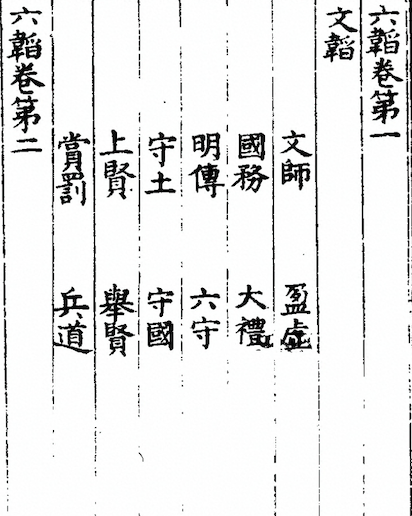 六韜卷第一
文韜
文師 盈虛
國務 大禮
明傳 六守
守土 守國
上賢 舉賢
賞罰 兵道
六韜卷第二